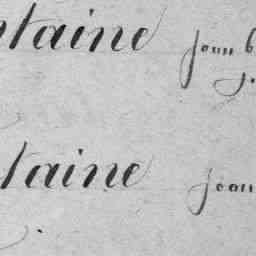 ntaine jean b
j.
ntaine jean